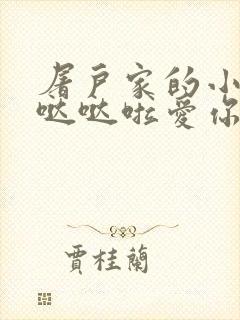 屠戶家的小
哒哒啦爱你
賈桂蘭